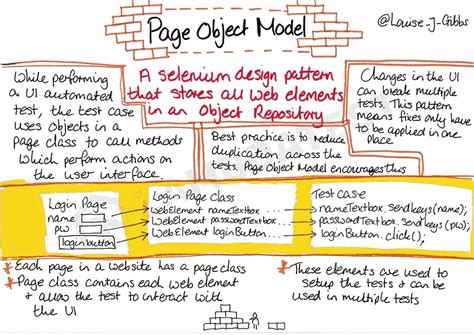 Page Object Model
@Louise-J-Gibbs
While performing
a UI automated
test, the test case
uses objects in a
page class to call methods
which perform actions on
the user interface.
A selenium design pattern
that stores all web elements
in an Object Repository
Best practice is to reduce
duplication across the
tests. Page Object Model encourages this
Changes in the UI
can break multiple
tests. This pattern
means fixes only have
to be applied in one
place
Login Page
name
pw
login button
Login Page Class
WebElement nameTextbox...
WebElement passwordTextbox...
WebElement loginButton...
Test Case
nameTextbox.sendKeys(name);
passwordTextbox.sendkeys(pw);
loginButton.click();
* Each page in a website has a page class
* Page class contains each web element
& allow the test to interact with
the UI
* These elements are used to
setup the tests & can be
used in multiple tests